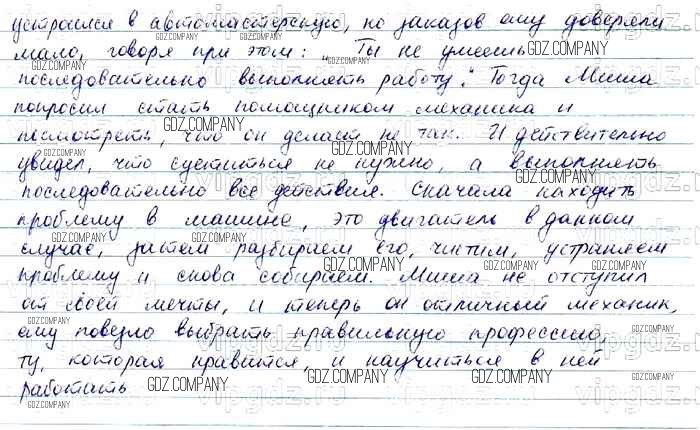 устроился в автомастерскую, но заказов ему доверяли
мало, говоря при этом: „Ты не умеешь
последовательно выполнять работу." Тогда Миша
попросил стать помощником механика и
посмотреть, что он делает не так. И действительно
увидел, что суетиться не нужно, а выполнять
последовательно все действия. Сначала находить
проблему в машине, это двигатель в данном
случае, затем разбираем его, чистим, устраняем
проблему и снова собираем. Миша не отступил
от своей мечты, и теперь он отличный механик,
ему повезло выбрать правильную профессию,
ту, которая нравится, и научиться в ней
работать
GDZ.COMPANY
vipgdz.ru